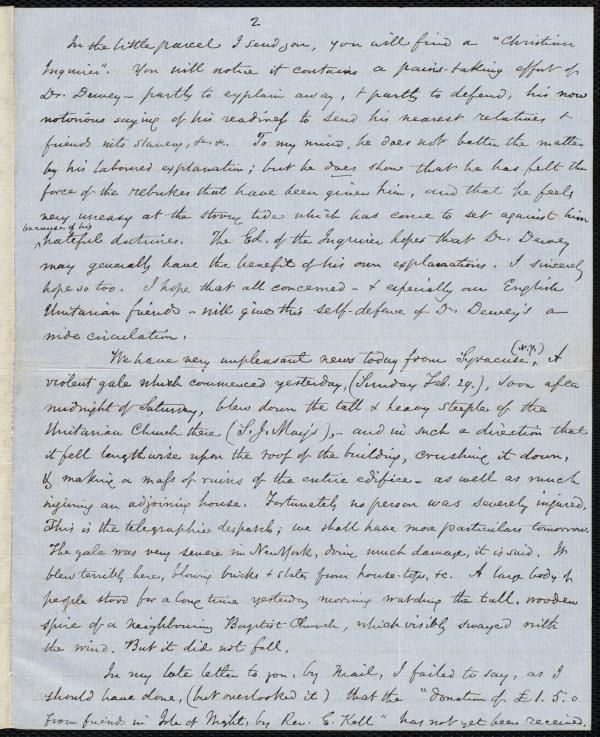 2
In the little parcel I send you, you will find a "Christian
Inquirer". You will notice it contains a pains-taking effort of
Dr. Dewey - partly to explain away, & partly to defend, his now
notorious saying of his readiness to send his nearest relatives &
friends into slavery, &c. &c. To my mind, he does not better the matter
by his laboured explanation; but he does show that he has felt the
force of the rebukes that have been given him, and that he feels
very uneasy at the strong tide which has come to set against him
because of his
hateful doctrines. The Ed. of the Inquirer hopes that Dr. Dewey
may generally have the benefit of his own explanations. I sincerely
hope so too. I hope that all concerned - & especially our English
Unitarian friends - will give this self-defence of Dr. Dewey's a
wide circulation.
We have very unpleasant news today from Syracuse (N.Y.). A
violent gale which commenced yesterday, (Sunday Feb. 29.), soon after
midnight of Saturday, blew down the tall & heavy steeple of the
Unitarian Church there (S. J. May's), - and in such a direction that
it fell lengthwise upon the roof of the building, crushing it down,
& making a mass of ruins of the entire edifice - as well as much
injuring an adjoining house. Fortunately no person was severely injured.
This is the telegraphic despatch; we shall have more particulars tomorrow.
The gale was very severe in New York, doing much damage, it is said. It
blew terribly here, blowing bricks & slates from house-tops, &c. A large body of
people stood for a long time yesterday morning watching the tall, wooden
spire of a neighbouring Baptist Church, which visibly swayed with
the wind. But it did not fall.
In my late letter to you, by mail, I failed to say, as I
should have done, (but overlooked it) that the "donation of £1.5.0
from friends in Isle of Wight, by Rev. E. Kell" has not yet been received.